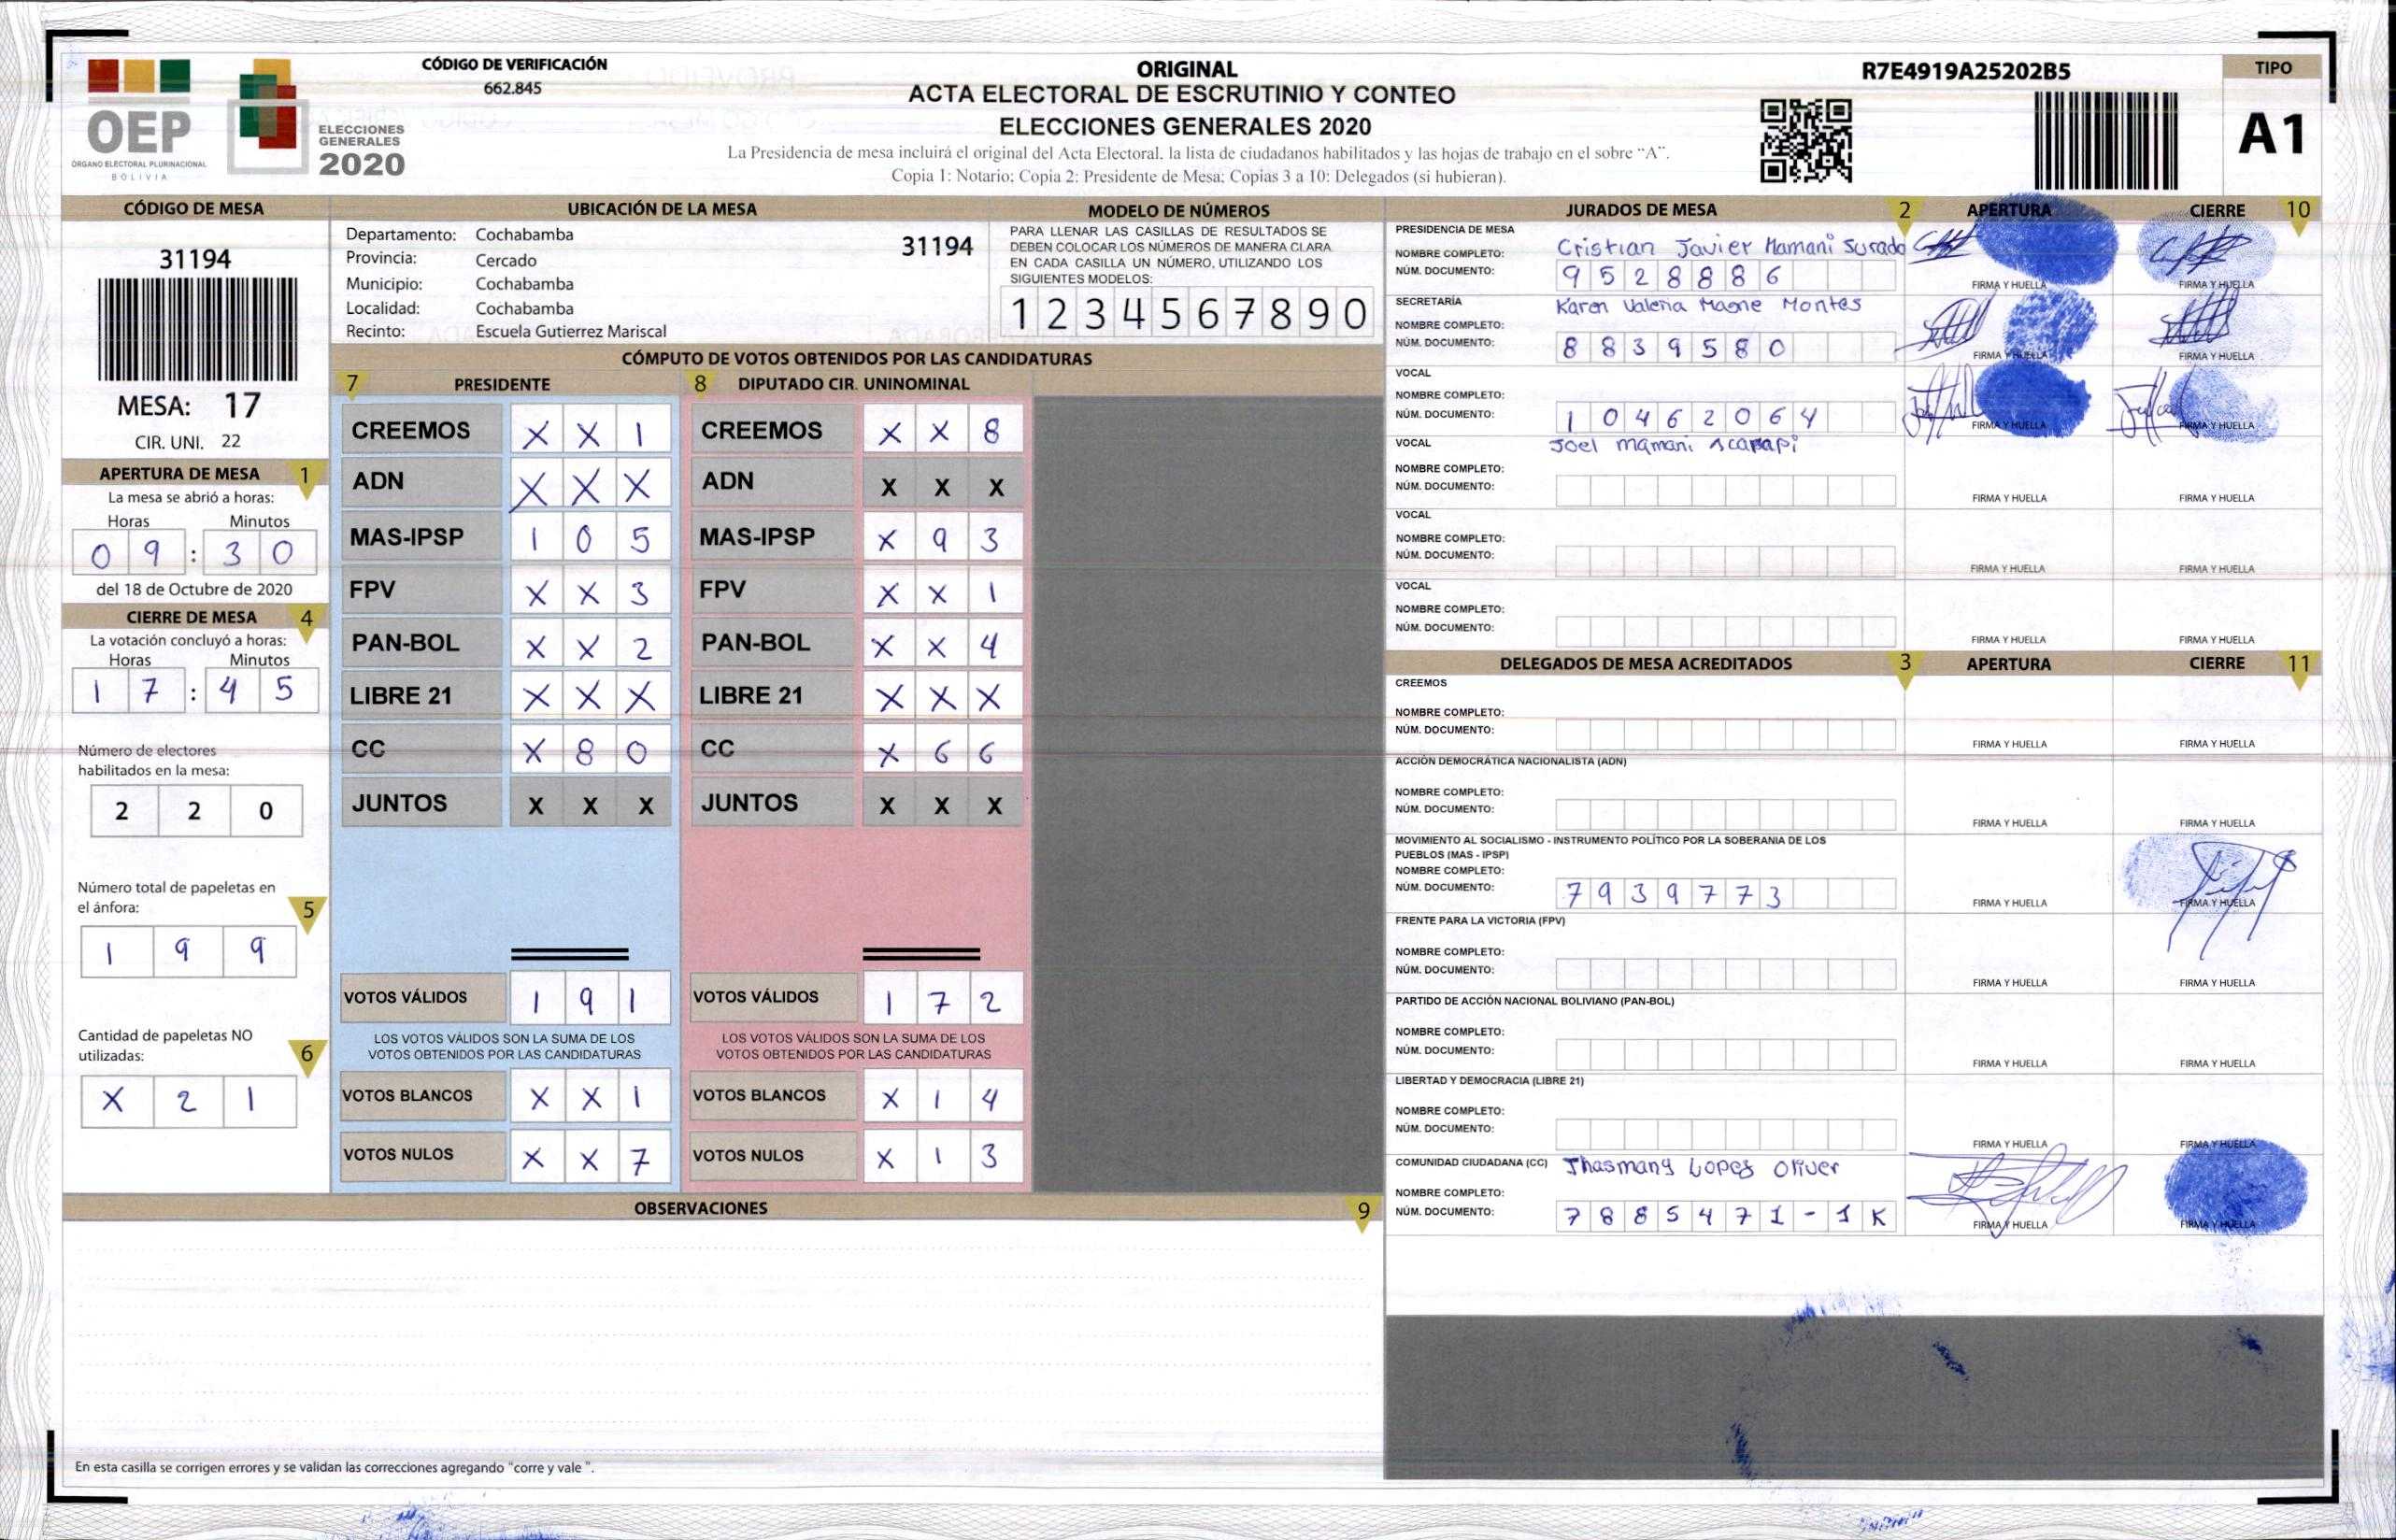 CÓDIGO DE VERIFICACIÓN
662.845
OEP
ÓRGANO ELECTORAL PLURINACIONAL
BOLIVIA
ELECCIONES
GENERALES
2020
ORIGINAL
ACTA ELECTORAL DE ESCRUTINIO Y CONTEO
ELECCIONES GENERALES 2020
La Presidencia de mesa incluirá el original del Acta Electoral, la lista de ciudadanos habilitados y las hojas de trabajo en el sobre "A".
Copia 1: Notario; Copia 2: Presidente de Mesa; Copias 3 a 10: Delegados (si hubieran).
R7E4919A25202B5
TIPO
A1
CÓDIGO DE MESA
31194
MESA: 17
CIR. UNI. 22
APERTURA DE MESA 1
La mesa se abrió a horas:
Horas Minutos
0 9 : 3 0
del 18 de Octubre de 2020
CIERRE DE MESA 4
La votación concluyó a horas:
Horas Minutos
1 7 : 4 5
Número de electores
habilitados en la mesa:
2 2 0
Número total de papeletas en
el ánfora: 5
1 9 9
Cantidad de papeletas NO
utilizadas: 6
X 2 1
UBICACIÓN DE LA MESA
Departamento: Cochabamba 31194
Provincia: Cercado
Municipio: Cochabamba
Localidad: Cochabamba
Recinto: Escuela Gutierrez Mariscal
MODELO DE NÚMEROS
PARA LLENAR LAS CASILLAS DE RESULTADOS SE
DEBEN COLOCAR LOS NÚMEROS DE MANERA CLARA
EN CADA CASILLA UN NÚMERO, UTILIZANDO LOS
SIGUIENTES MODELOS:
1 2 3 4 5 6 7 8 9 0
CÓMPUTO DE VOTOS OBTENIDOS POR LAS CANDIDATURAS
7 PRESIDENTE 8 DIPUTADO CIR. UNINOMINAL
CREEMOS X X 1 CREEMOS X X 8
ADN X X X ADN X X X
MAS-IPSP 1 0 5 MAS-IPSP X 9 3
FPV X X 3 FPV X X 1
PAN-BOL X X 2 PAN-BOL X X 4
LIBRE 21 X X X LIBRE 21 X X X
CC X 8 0 CC X 6 6
JUNTOS X X X JUNTOS X X X
VOTOS VÁLIDOS 1 9 1 VOTOS VÁLIDOS 1 7 2
LOS VOTOS VÁLIDOS SON LA SUMA DE LOS LOS VOTOS VÁLIDOS SON LA SUMA DE LOS
VOTOS OBTENIDOS POR LAS CANDIDATURAS VOTOS OBTENIDOS POR LAS CANDIDATURAS
VOTOS BLANCOS X X 1 VOTOS BLANCOS X 1 4
VOTOS NULOS X X 7 VOTOS NULOS X 1 3
OBSERVACIONES 9
En esta casilla se corrigen errores y se validan las correcciones agregando "corre y vale ".
JURADOS DE MESA 2 APERTURA CIERRE 10
PRESIDENCIA DE MESA
NOMBRE COMPLETO: Cristian Javier Mamani Jurado
NÚM. DOCUMENTO: 9 5 2 8 8 8 6
FIRMA Y HUELLA FIRMA Y HUELLA
SECRETARÍA Karen Valeria Magne Montes
NOMBRE COMPLETO:
NÚM. DOCUMENTO: 8 8 3 9 5 8 0
FIRMA Y HUELLA FIRMA Y HUELLA
VOCAL
NOMBRE COMPLETO:
NÚM. DOCUMENTO: 1 0 4 6 2 0 6 4
FIRMA Y HUELLA FIRMA Y HUELLA
VOCAL Joel Mamani
NOMBRE COMPLETO:
NÚM. DOCUMENTO:
FIRMA Y HUELLA FIRMA Y HUELLA
VOCAL
NOMBRE COMPLETO:
NÚM. DOCUMENTO:
FIRMA Y HUELLA FIRMA Y HUELLA
VOCAL
NOMBRE COMPLETO:
NÚM. DOCUMENTO:
FIRMA Y HUELLA FIRMA Y HUELLA
DELEGADOS DE MESA ACREDITADOS 3 APERTURA CIERRE 11
CREEMOS
NOMBRE COMPLETO:
NÚM. DOCUMENTO:
FIRMA Y HUELLA FIRMA Y HUELLA
ACCIÓN DEMOCRÁTICA NACIONALISTA (ADN)
NOMBRE COMPLETO:
NÚM. DOCUMENTO:
FIRMA Y HUELLA FIRMA Y HUELLA
MOVIMIENTO AL SOCIALISMO - INSTRUMENTO POLÍTICO POR LA SOBERANIA DE LOS
PUEBLOS (MAS - IPSP)
NOMBRE COMPLETO:
NÚM. DOCUMENTO: 7 9 3 9 7 7 3
FIRMA Y HUELLA FIRMA Y HUELLA
FRENTE PARA LA VICTORIA (FPV)
NOMBRE COMPLETO:
NÚM. DOCUMENTO:
FIRMA Y HUELLA FIRMA Y HUELLA
PARTIDO DE ACCIÓN NACIONAL BOLIVIANO (PAN-BOL)
NOMBRE COMPLETO:
NÚM. DOCUMENTO:
FIRMA Y HUELLA FIRMA Y HUELLA
LIBERTAD Y DEMOCRACIA (LIBRE 21)
NOMBRE COMPLETO:
NÚM. DOCUMENTO:
FIRMA Y HUELLA FIRMA Y HUELLA
COMUNIDAD CIUDADANA (CC) Jhasmany Lopez Oliver
NOMBRE COMPLETO:
NÚM. DOCUMENTO: 7 8 8 5 4 7 1 - 1 K
FIRMA Y HUELLA FIRMA Y HUELLA